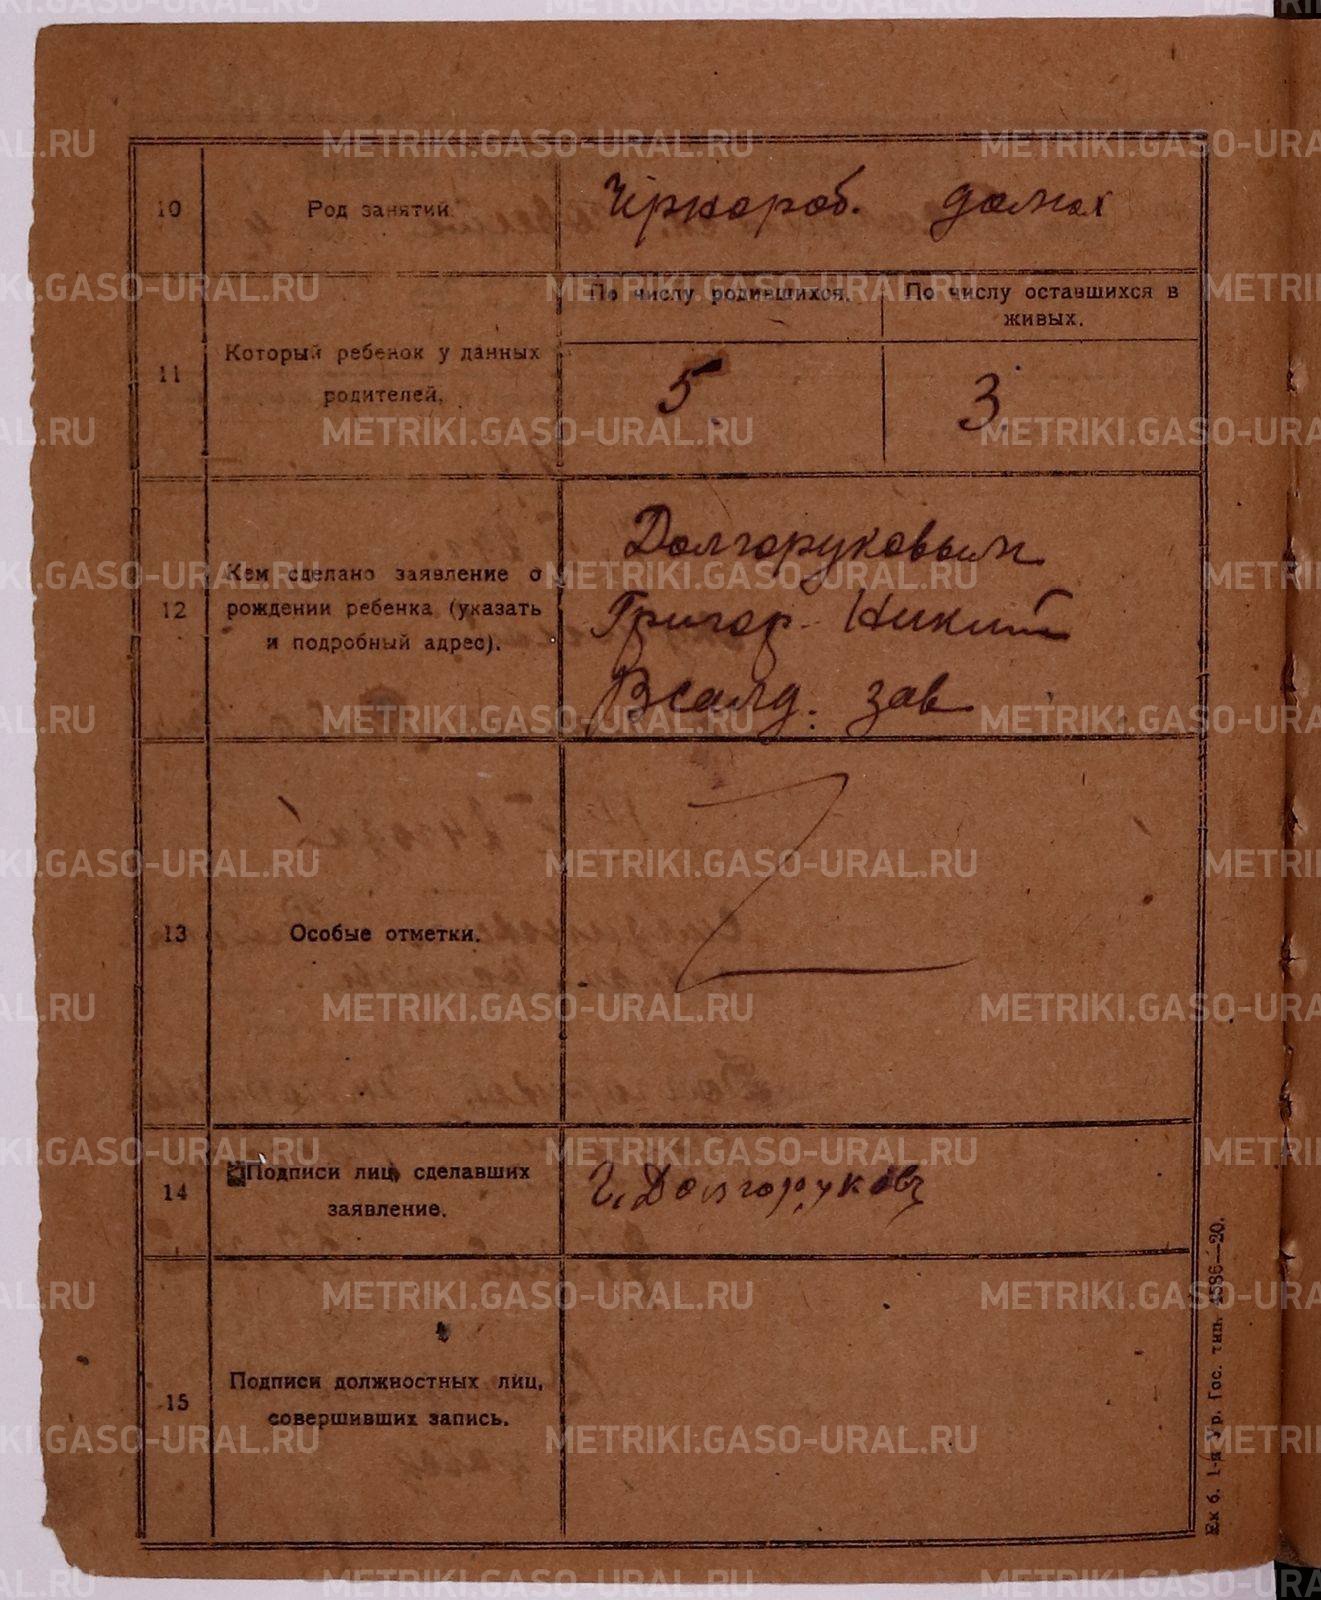 10 Род занятий Чернораб. домох
По числу родившихся. По числу оставшихся в живых.
11 Который ребенок у данных родителей. 5. 3.
12 Кем сделано заявление о рождении ребенка (указать и подробный адрес).
Долгоруковым
Григор. Никит
зав
13 Особые отметки.
14 Подписи лиц, сделавших заявление. Г. Долгоруковъ
15 Подписи должностных лиц, совершивших запись.
Ек б. 1-я Ур. Гос. тип. 4586—20.
METRIKI.GASO-URAL.RU